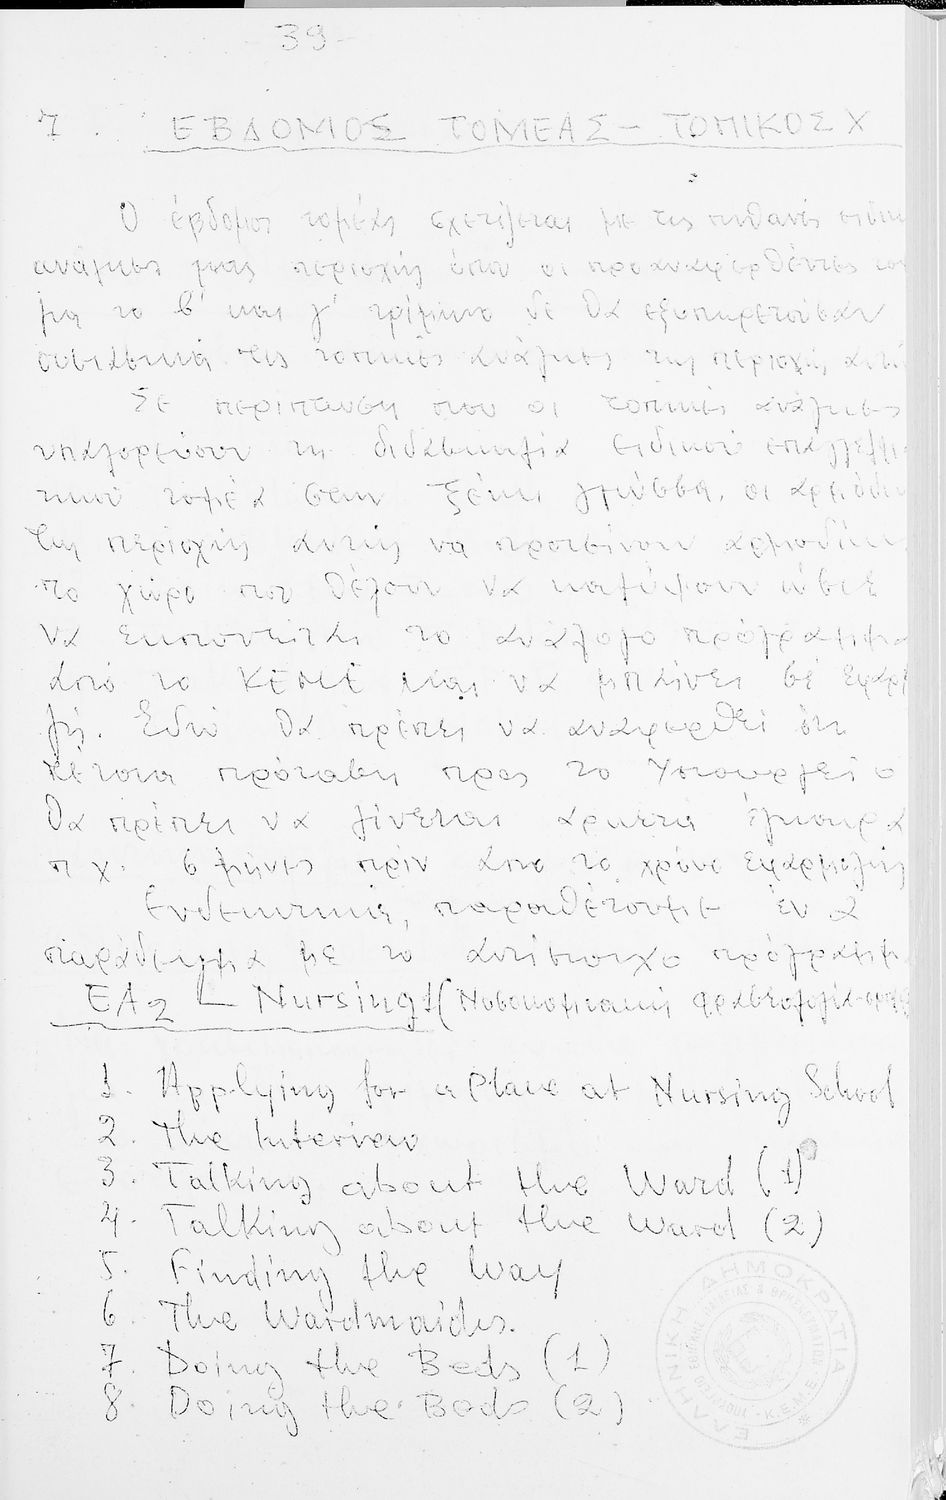 - 39 -
7. ΕΒΔΟΜΟΣ ΤΟΜΕΑΣ - ΤΟΠΙΚΟΣ Χ
Ο έβδομος τομέας σχετίζεται με τις πιθανές
ανάγκες μιας περιοχής όπου οι προαναφερθέντες
για το β' και γ' τρίμηνο δε θα εξυπηρετούσαν
ουσιαστικά τις τοπικές ανάγκες της περιοχής
Σε περίπτωση που οι τοπικές ανάγκες
υπαγορεύουν τη διδασκαλία ειδικού επαγγελμα
τικού τομέα στην ξένη γλώσσα, οι αρμόδιοι
της περιοχής αυτής να προτείνουν
το χώρο που θέλουν να καλύψουν ώστε
να εκπονείται το ανάλογο πρόγραμμα
από το ΚΕΜΕ και να μπαίνει σε εφαρμ
γή. Εδώ θα πρέπει να αναφερθεί ότι
τέτοια πρόταση προς το Υπουργείο
θα πρέπει να γίνεται αρκετά έγκαιρα
π.χ. 6 μήνες πριν απο το χρόνο εφαρμογής
Ενδεικτικά, παραθέτουμε ένα
παράδειγμα με το αντίστοιχο πρόγραμμ
ΕΛ2 - Nursing 1 (Νοσοκομειακή φρασεολογία
1. Applying for a Place at Nursing School
2. The Interview
3. Talking about the Ward (1)
4. Talking about the Ward (2)
5. Finding the Way
6. The Wardmaids.
7. Doing the Beds (1)
8. Doing the Beds (2)
ΕΛΛΗΝΙΚΗ ΔΗΜΟΚΡΑΤΙΑ
Κ.Ε.Μ.Ε.